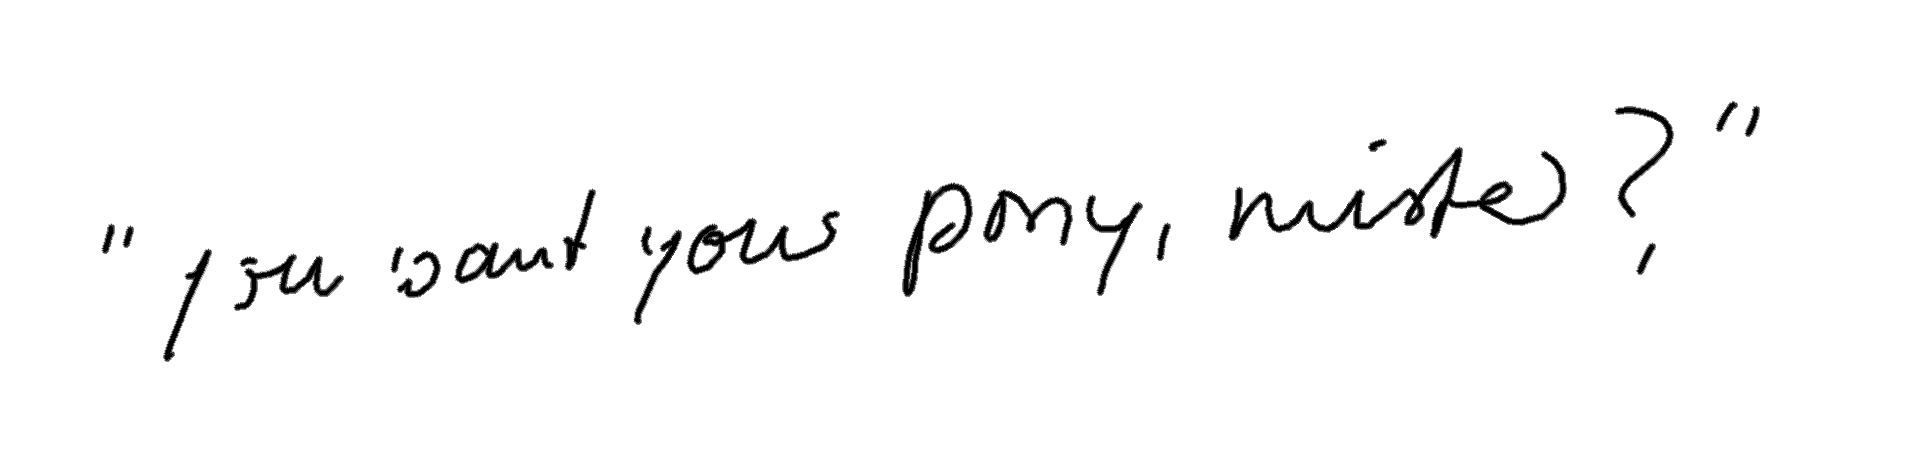 "you want your pony, mister?"